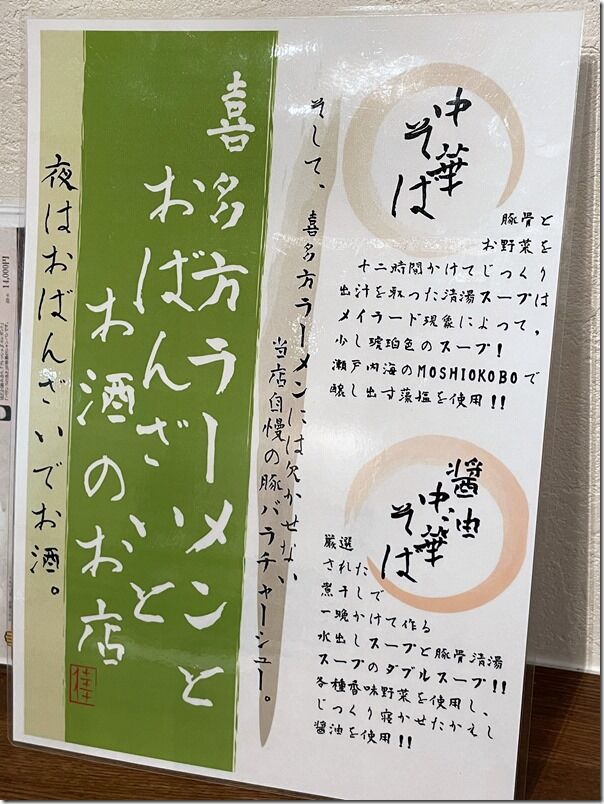 中華
そば
豚骨と
お野菜を
十二時間かけてじっくり
出汁を取った清湯スープは
メイラード現象によって、
少し琥珀色のスープ!
瀬戸内海のMOSHIOKOBOで
醸し出す藻塩を使用!!
醤油
中華
そば
厳選
された
煮干しで
一晩かけて作る
水出しスープと豚骨清湯
スープのダブルスープ!!
各種香味野菜を使用し、
じっくり寝かせたかえし
醤油を使用!!
そして、喜多方ラーメンには欠かせない
当店自慢の豚バラチャーシュー。
喜多方ラーメンと
おばんざいと
お酒のお店
佳
夜はおばんざいでお酒。
14,000円